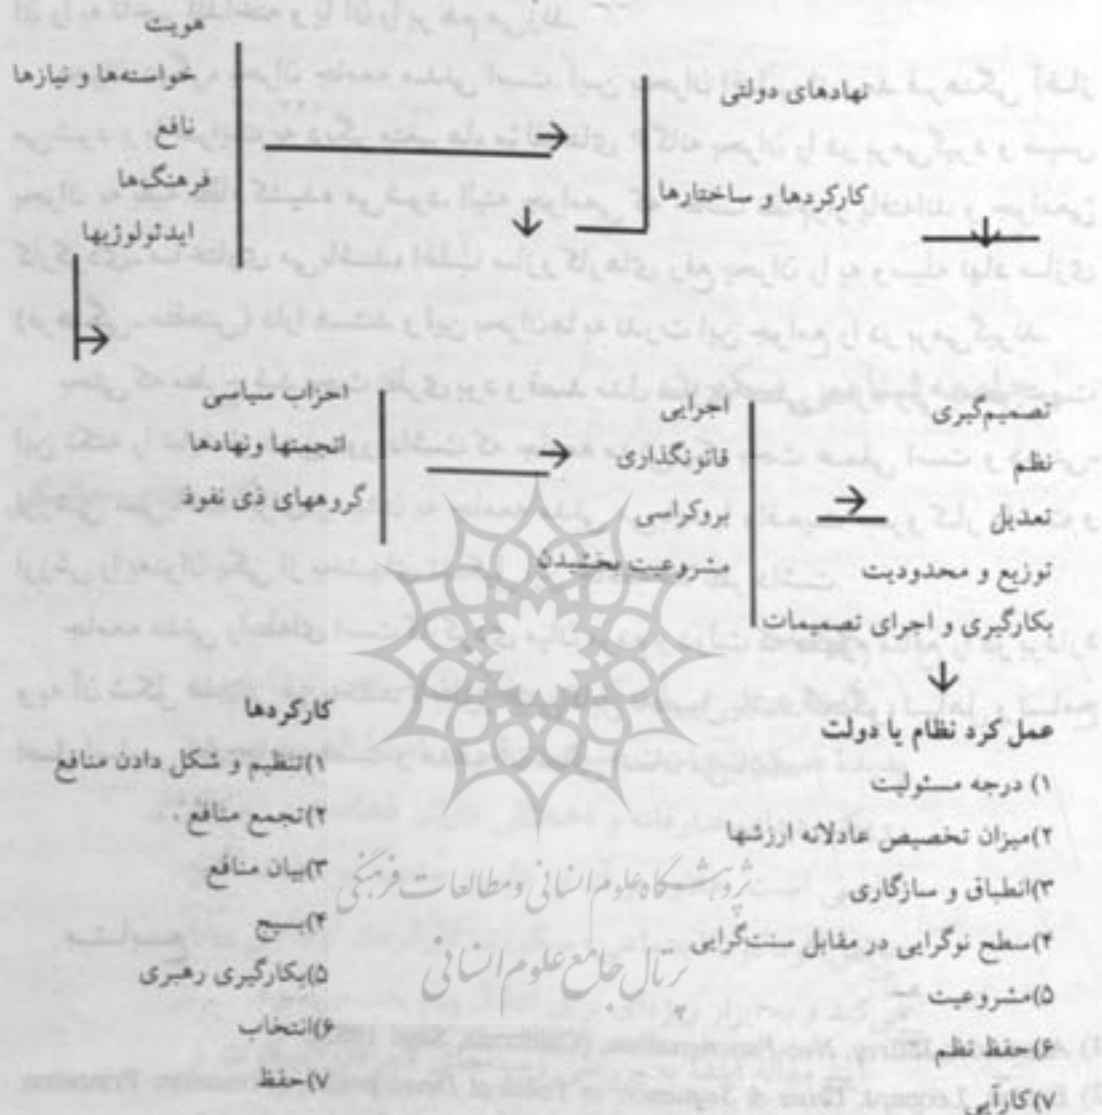 هویت
خواسته‌ها و نیازها
نافع
فرهنگ‌ها
ایدئولوژیها
نهادهای دولتی
کارکردها و ساختارها
احزاب سیاسی
انجمنها ونهادها
گروههای ذی نفوذ
اجرایی
قانونگذاری
بروکراسی
مشروعیت بخشیدن
تصمیم‌گیری
نظم
تعدیل
توزیع و محدودیت
بکارگیری و اجرای تصمیمات
عمل کرد نظام یا دولت
۱) درجه مسئولیت
۲)میزان تخصیص عادلانه ارزشها
۳)انطباق و سازگاری
۴)سطح نوگرایی در مقابل سنت‌گرایی
۵)مشروعیت
۶)حفظ نظم
۷)کارآیی
کارکردها
۱)تنظیم و شکل دادن منافع
۲)تجمع منافع .
۳)بیان منافع
۴)بسیج
۵)بکارگیری رهبری
۶)انتخاب
۷)حفظ
پژوهشگاه علوم انسانی و مطالعات فرهنگی
پرتال جامع علوم انسانی